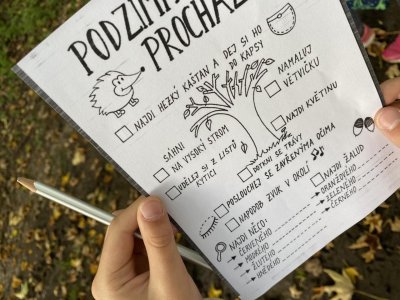 PODZIMNÍ
PROCHÁZKA
NAJDI HEZKÝ KAŠTAN A DEJ SI HO
DO KAPSY
NAMALUJ
VĚTVIČKU
SÁHNI
NA VYSOKÝ STROM
NAJDI KVĚTINU
UDĚLEJ SI Z LISTŮ
KYTICI
DOTKNI SE TRÁVY
POSLOUCHEJ SE ZAVŘENÝMA OČIMA
NAPODOB ZVUK V OKOLÍ
NAJDI ŽALUD
NAJDI NĚCO:
ČERVENÉHO
MODRÉHO
ŽLUTÉHO
HNĚDÉHO
ORANŽOVÉHO
ZELENÉHO
ČERNÉHO